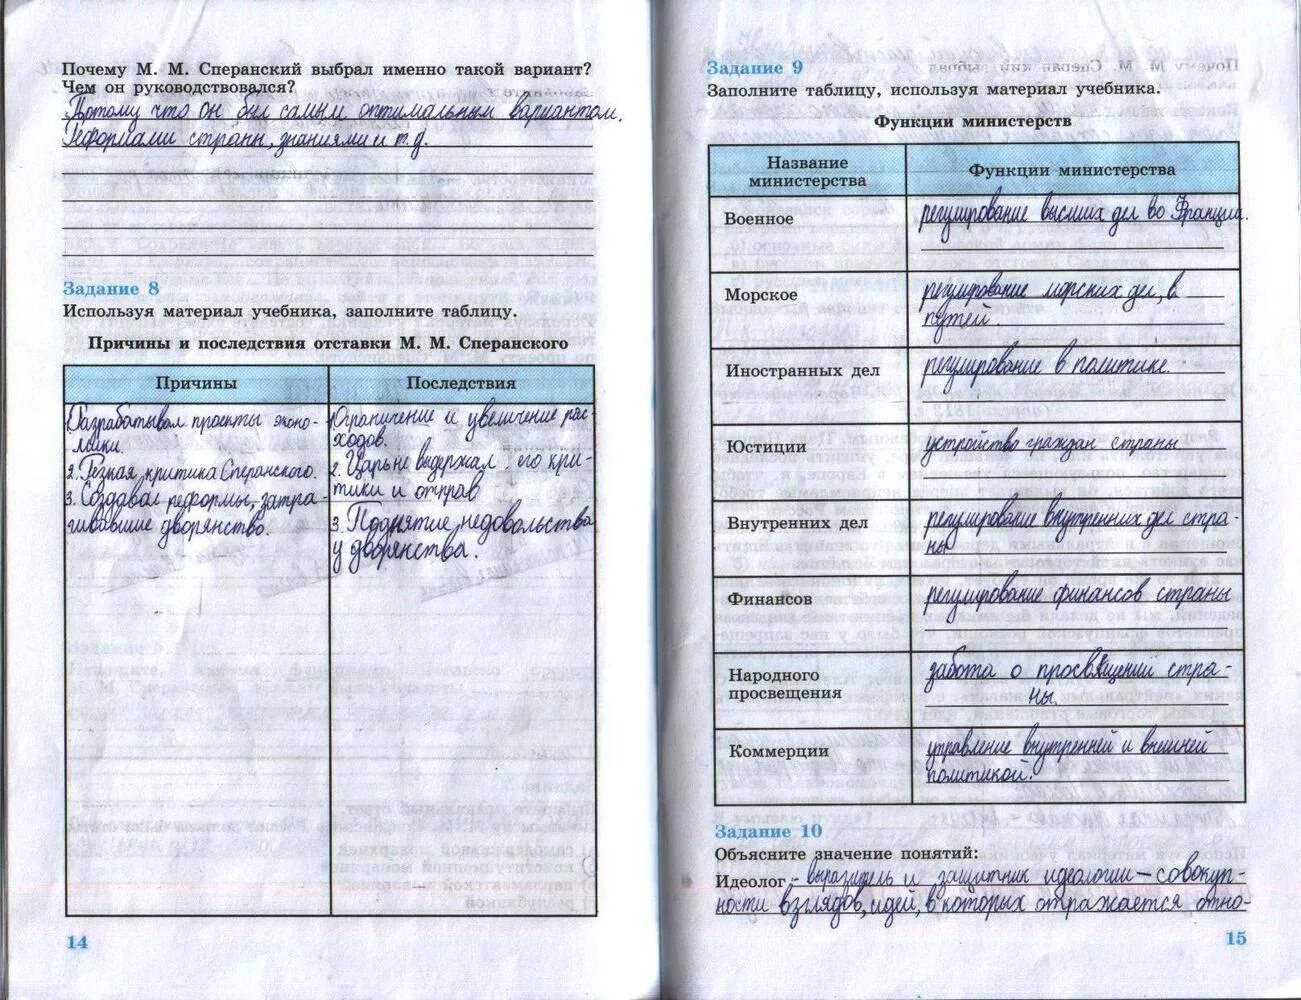 Почему М. М. Сперанский выбрал именно такой вариант?
Чем он руководствовался?
Потому что он был самым оптимальным вариантом.
Реформами страны, знаниями и т.д.
Задание 8
Используя материал учебника, заполните таблицу.
Причины и последствия отставки М. М. Сперанского
Причины
Последствия
1. Разрабатывал проекты эконо-
мики.
2. Резкая критика Сперанского.
3. Создавал реформы, затра-
гивавшие дворянство.
1. Ограничение и увеличение рас-
ходов.
2. Царь не выдержал его кри-
тики и отправ
3. Поднятие недовольства
у дворянства.
14
Задание 9
Заполните таблицу, используя материал учебника.
Функции министерств
Название
министерства
Функции министерства
Военное
регулирование высших дел во Франции.
Морское
регулирование морских дел, в
путей.
Иностранных дел
регулирование в политике.
Юстиции
устройство граждан страны
Внутренних дел
регулирование внутренних дел стра-
ны
Финансов
регулирование финансов страны
Народного
просвещения
забота о просвещений стра-
ны.
Коммерции
управление внутренней и внешней
политикой.
Задание 10
Объясните значение понятий:
Идеолог - выразитель и защитник идеологии — совокуп-
ности взглядов, идей, в которых отражается отно-
15